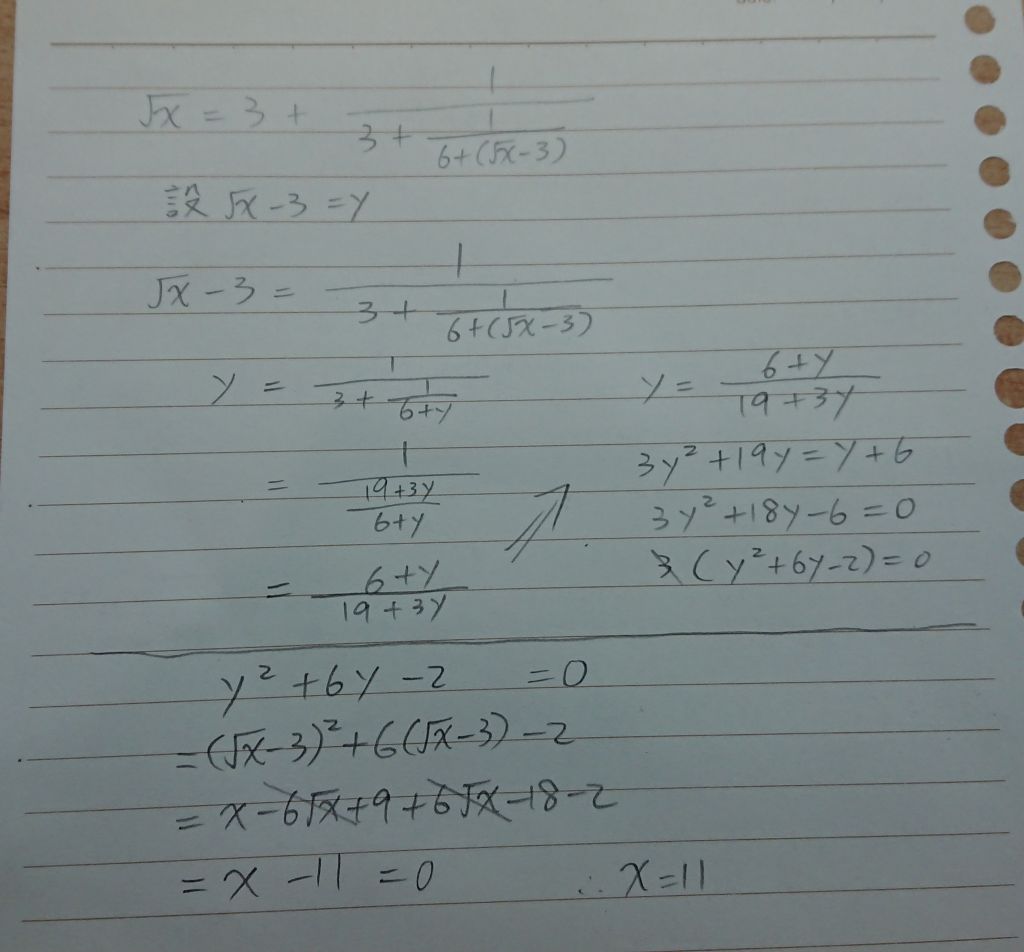 √x = 3 + 1/(3 + 1/(6+(√x-3)))
設 √x - 3 = y
√x - 3 = 1/(3 + 1/(6+(√x-3)))
y = 1/(3 + 1/(6+y))
= 1/((19+3y)/(6+y))
= (6+y)/(19+3y)
y = (6+y)/(19+3y)
3y² + 19y = y + 6
3y² + 18y - 6 = 0
3(y² + 6y - 2) = 0
y² + 6y - 2 = 0
= (√x-3)² + 6(√x-3) - 2
= x - 6√x + 9 + 6√x - 18 - 2
= x - 11 = 0 ∴ x = 11